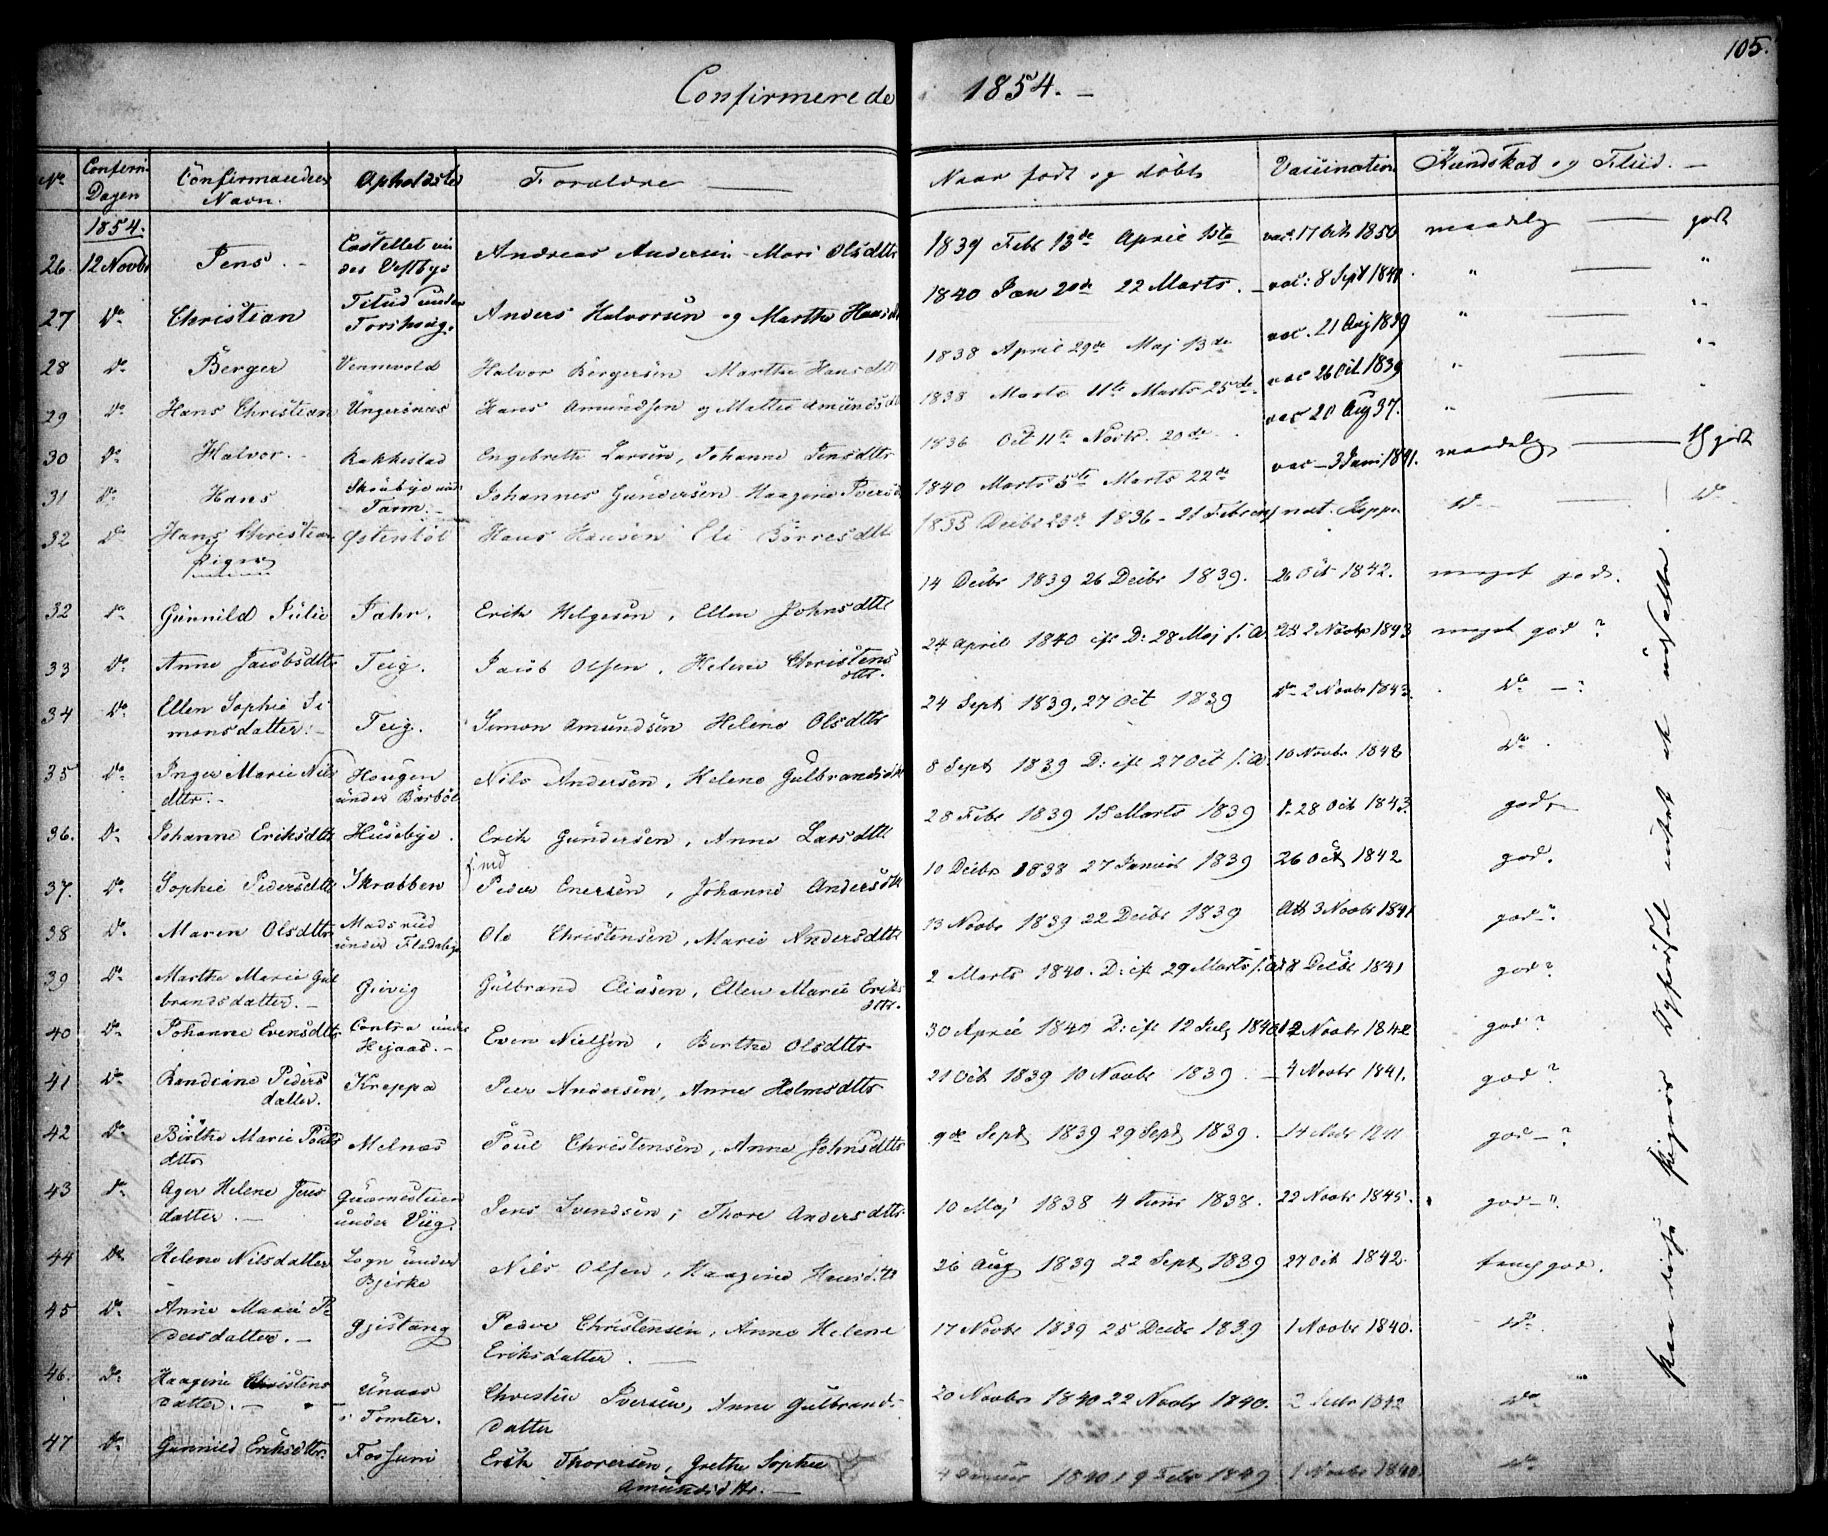 105.
Confirmerede 1854. –
No Confirm: Dagen Confirmandens Navn. Opholdsted Forældre Naar født og døbt Vaccination Kundskab og Flid. –
1854.
26. 12 Novbr Jens. – Castellet Andreas Andersen – Mari Olsdttr 1839 Febr 13de April 1ste vac. 17 Octb 1850 maadelig godt
27 Do Christian under Anders Halvorsen og Marthe Hansdt 1840 Jan 20de 22 Marts. – vac: 8 Sept 184 " "
28 Do Berger Vennevold Halvor Børgersen Marthe Hansdttr 1838 April 29de Maj 13de vac. 21 Aug 1839 " "
29 Do Hans Christian Ungersnæs Hans Amundsen og Mattie Amundsd 1838 Marts 11te Marts 25de vac 26 Oct. 1839 "
30 Do Halvor. Rakkestad Engebreth Larsen, Johanne Jensdttr 1836 Oct 11te Novbr. 20de vac 20 Aug 37. "
31 Do Hans Skoubye under Farm. Johannes Gundersen Haagine Iversd 1840 Marts 5te Marts 22de vac – 3 Juni 1841. maadelig godt
32 Do Hans Christian Østenbøl Hans Hansen Eli Børresdttr 1835 Decbr 23de 1836 – 21 Febr nat. Kopper Do Do
Piger
32 Do Gunnild Julie Fahr. Erik Helgesen, Ellen Johnsdttr 14 Decbr 1839 26 Decbr 1839. 26 Oct 1842. meget god.
33 Do Anne Jacobsdttr Teig. Jacob Olsen, Helene Christensdttr. 24 April 1840 eft D: 28 Maj s: A. 2 Novbr 1843 meget god ?
34 Do Ellen Sophie Simonsdatter. – Teig. Simon Amundsen Helene Olsdttr 24 Sept 1839, 27 Oct 1839 Do 2 Novbr 1843. Do – ?
35 Do Inger Marie Nilsdttr. – Hougen under Bærbøl Nils Andersen, Helene Gulbrandsdttr 8 Sept 1839 D: eft 27 Oct s: A 10 Novbr 1842 Do
36. Do Johanne Eriksdttr Husebye. Erik Gundersen, Anne Larsdttr 28 Febr 1839 Marts 1839 28 Oct 1843. god
37. Do Sophie Pedersdttr Skrabben Peder Enersen, Johanne Andersdtt 10 Decbr 1838 27 Januar 1839 26 Oct 1842 god.
38 Do Maren Olsdttr Madsrud under Fladebye Ole Christensen, Marie Andersdttr 13 Novbr 1839 22 Decbr 1839 3 Novbr 1841 god – ?
39 Do Marthe Marie Gulbrandsdatter. – Givig Gulbrand Eliasen, Ellen Marie Eriksdttr. 2 Marts 1840. D: eft 29 Marts s: A: 8 Decbr 1841 god ?
40 Do Johanne Evensdttr Contra under Hejaas. – Even Nielsen, Berthe Olsdttr 30 April 1840 D: eft 12 July 1840 2 Novbr 1842 god ?
41 Do Randine Pedersdatter. Kreppa Peer Andersen, Anne Holmsdttr 21 Oct 1839 10 Novbr 1839 – 4 Novbr 1841. god ?
42 Do Birthe Marie Poulsdttr Melnæs Poul Christensen, Anne Johnsdttr 9de Sept 1839 29 Sept 1839. 14 1841 god – ?
43 Do Ager Helene Jensdatter. – under Vug. Jens Svendsen, Thore Andersdttr. 10 Maj 1838 4 Juni 1838. 22 Novbr 1845. god – ?
44 Do Helene Nilsdatter Sogn under Bjerke Nils Olsen, Haagine Hansdttr 26 Aug 1839 22 Sept 1839 27 Oct 1842. temg god.
45 Do Anne Marie Pedersdatter. – Gjistang Peder Christensen, Anne Helene Eriksdatter. – 17 Novbr 1839 25 Decbr 1839 1 Novbr 1840. Do
46. Do Haagine Christensdatter. – Unaas i Tomter. Christen Iversen, Anne Gulbrandsdatter 20 Novbr 1840 22 Novbr 1840. 2 1842 Do
47 Do Gunnild Eriksdttr. Fossum Erik Thoresen, Grethe Sophie Amundsdttr. – 4 Januar 1840 19 Febr 1840 1 Novbr 1840. Do